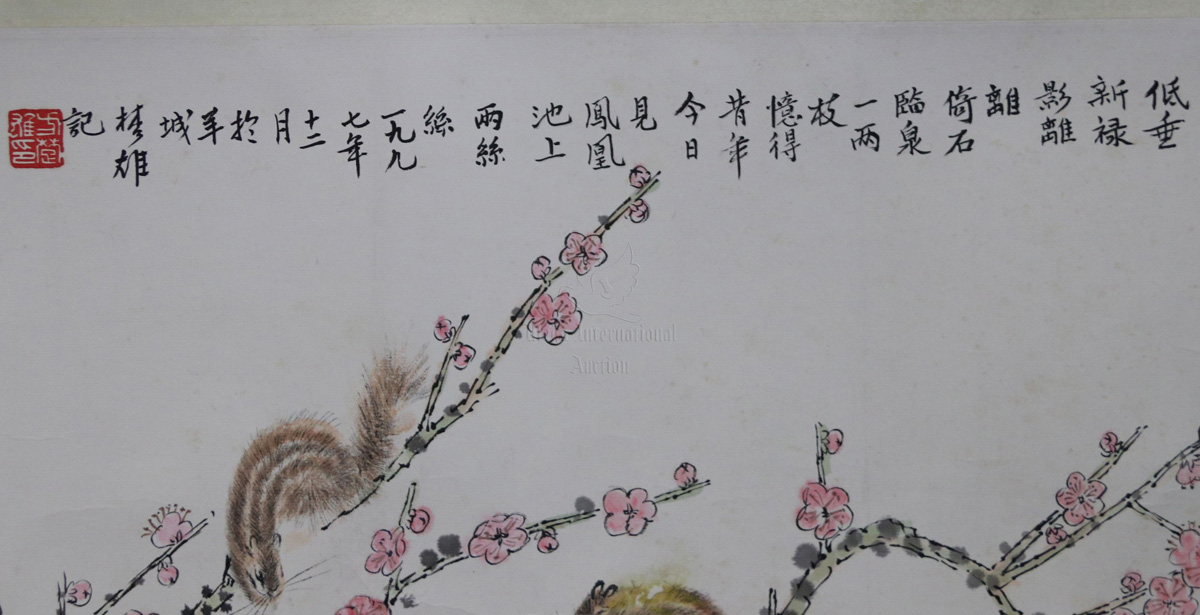 低垂
新禄
影離
離
倚石
臨泉
一两
枝
憶得
昔年
今日
見
鳳凰
池上
兩絲
絲
一九九
七年
十二
月
於
羊
城
楚雄
記
International
Auction